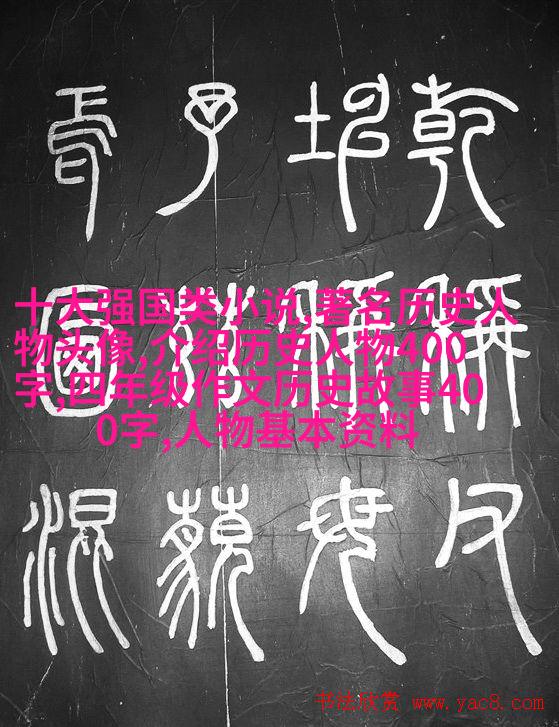 乾稱父
坤稱母
予茲藐
焉混
十大强国类小说,著名历史人
物头像,介绍历史人物400
字,四年级作文历史故事40
0字,人物基本资料
书法欣赏 www.yac8.com